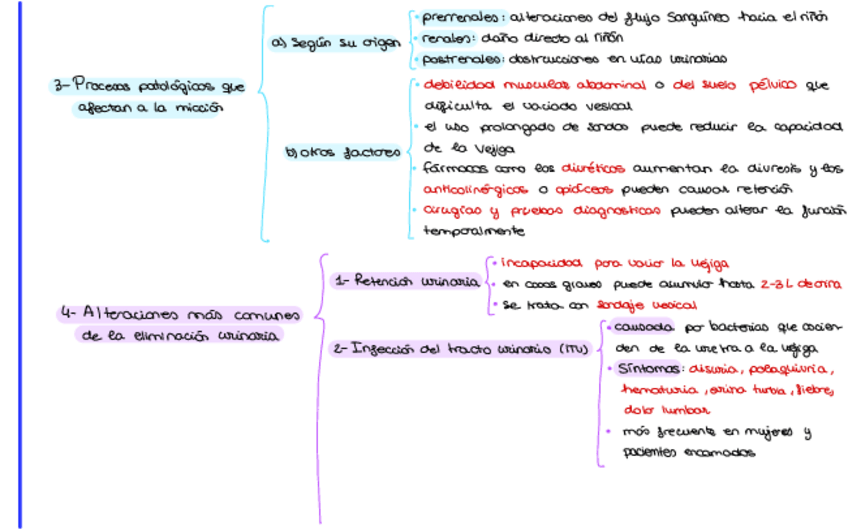 3- Procesos patológicos que
afectan a la micción
a) Según su origen
• prerrenales: alteraciones del flujo sanguíneo hacia el riñón
• renales: daño directo al riñón
• postrenales: obstrucciones en vías urinarias
b) otros factores
• debilidad muscular abdominal o del suelo pélvico que
dificulta el vaciado vesical
• el uso prolongado de sondas puede reducir la capacidad
de la vejiga
• fármacos como los diuréticos aumentan la diuresis y los
anticolinérgicos o opiáceos pueden causar retención
• cirugías y pruebas diagnosticas pueden alterar la función
temporalmente
4- Alteraciones más comunes
de la eliminación urinaria
1- Retención urinaria
• incapacidad para vaciar la vejiga
• en casos graves puede acumular hasta 2-3L de orina
• se trata con sondaje vesical
2- Infección del tracto urinario (ITU)
• causada por bacterias que ascien-
den de la uretra a la vejiga
• Síntomas: disuria, polaquiuria,
hematuria, orina turbia, fiebre,
dolor lumbar
• más frecuente en mujeres y
pacientes encamados